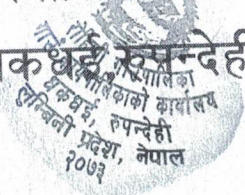 कधई, रुपन्देही
गाउँपालिका
पालिकाको कार्यालय
धकधई, रुपन्देही
लुम्बिनी प्रदेश, नेपाल
२०७३